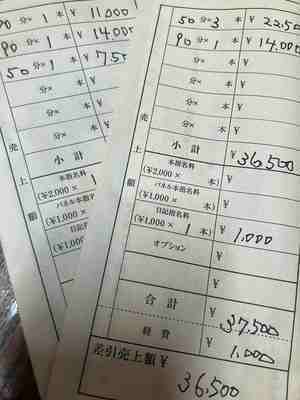 90分×1本 ¥11,000
90分×1本 ¥14,000
50分×1本 ¥7,5
分× 本 ¥
分× 本 ¥
分× 本 ¥
売上額
小計 ¥
本指名料
(¥2,000× 1
パネル本指
(¥1,000×
日記
(¥1,00
50分×3本 ¥22,50
90分×1本 ¥14,000
分× 本 ¥
分× 本 ¥
分× 本 ¥
分× 本 ¥
売上額
小計 ¥36,500
本指名料
(¥2,000× 本) ¥
パネル本指名料
(¥1,000× 本) ¥
日記指名料
(¥1,000× 1本) ¥1,000
オプション ¥
合計 ¥37,500
経費 ¥1,000
差引売上額¥
36,500